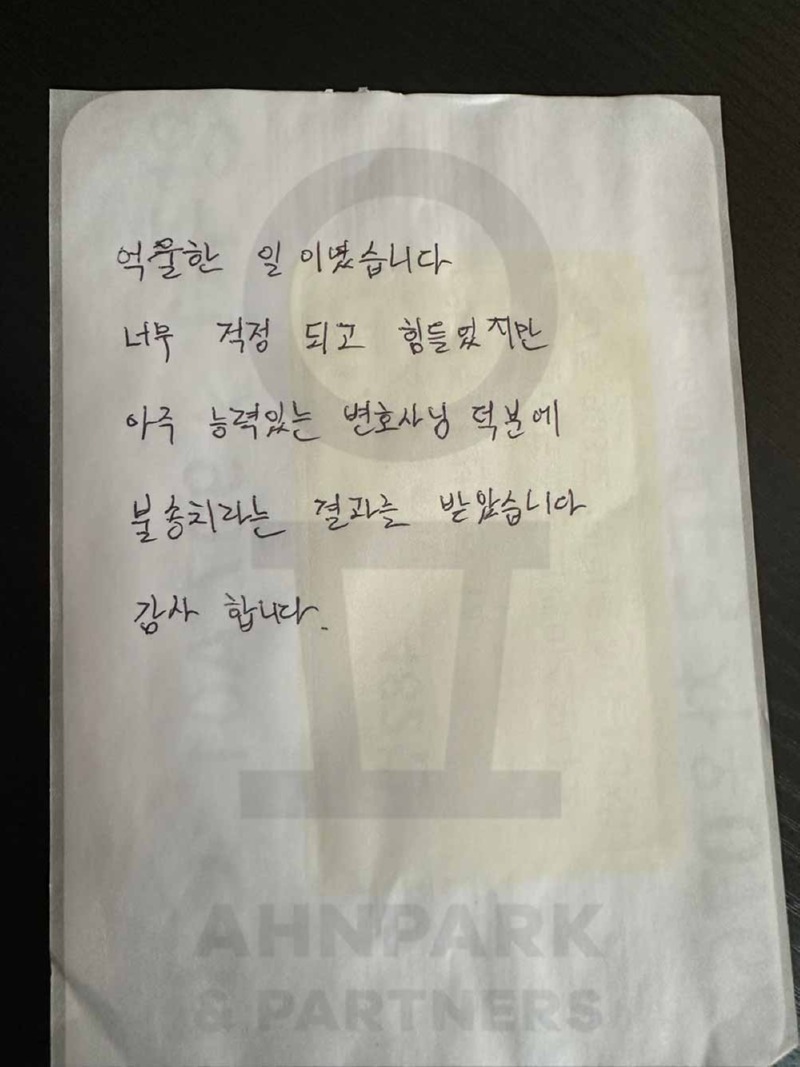 억울한 일 이였습니다
너무 걱정 되고 힘들었지만
아주 능력있는 변호사님 덕분에
불송치라는 결과를 받았습니다
감사 합니다.
AHNPARK
& PARTNERS